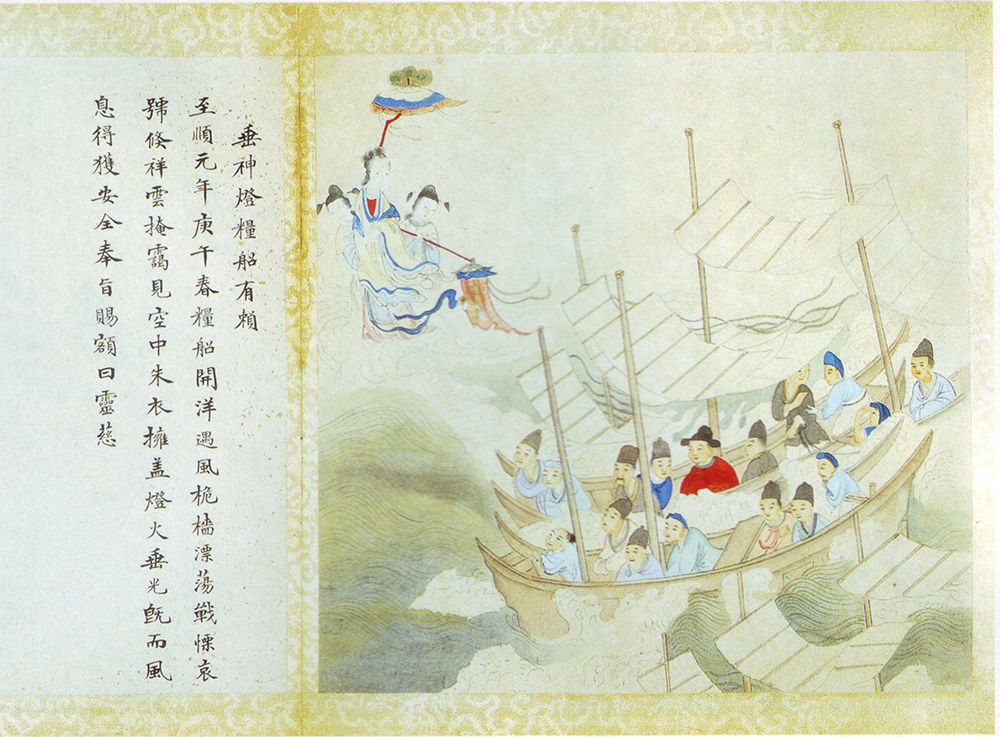 垂神燈糧船有頼
至順元年庚午春糧船開洋遇風桅檣漂蕩戰慄哀
號倐祥雲掩靄見空中朱衣擁盖燈火垂光旣而風
息得獲安全奉旨賜額曰靈慈